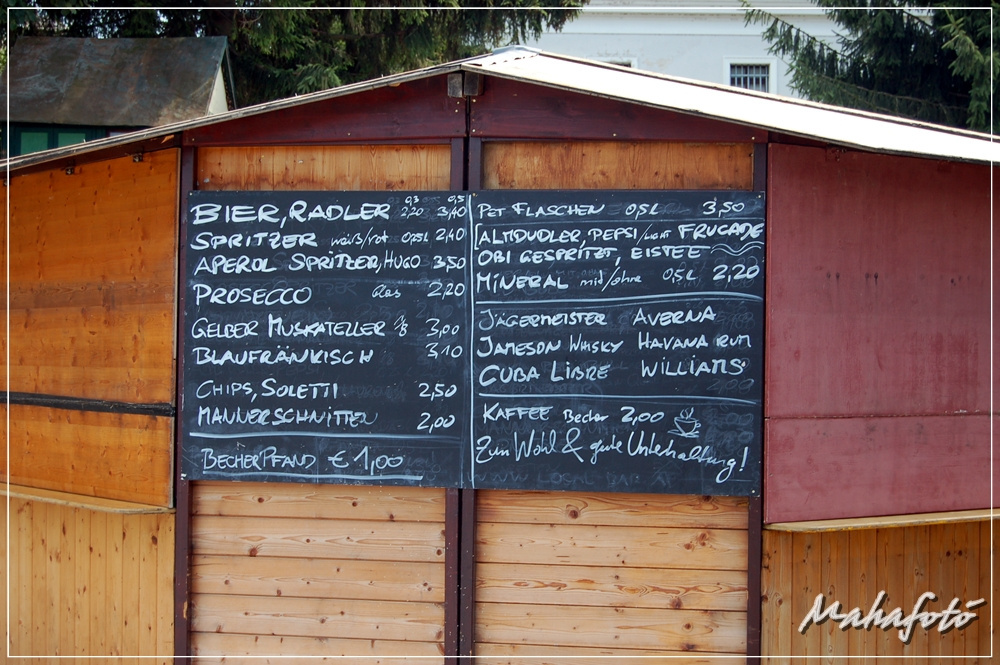 0,3 0,5
BIER, RADLER 2,20 3,40
SPRITZER weiß/rot 0,25L 2,40
APEROL SPRITZER, HUGO 3,50
PROSECCO Glas 2,20
GELBER MUSKATELLER 1/8 3,00
BLAUFRÄNKISCH 3,10
CHIPS, SOLETTI 2,50
MANNERSCHNITTEN 2,00
BECHERPFAND € 1,00
PET FLASCHEN 0,5L 3,50
ALMDUDLER, PEPSI/LIGHT FRUCADE
OBI GESPRITZT, EISTEE
MINERAL mit/ohne 0,5L 2,20
JÄGERMEISTER AVERNA
JAMESON WHISKY HAVANA RUM
CUBA LIBRE WILLIAMS
KAFFEE Becher 2,00
Zum Wohl & gute Unterhaltung!
Mahafotó